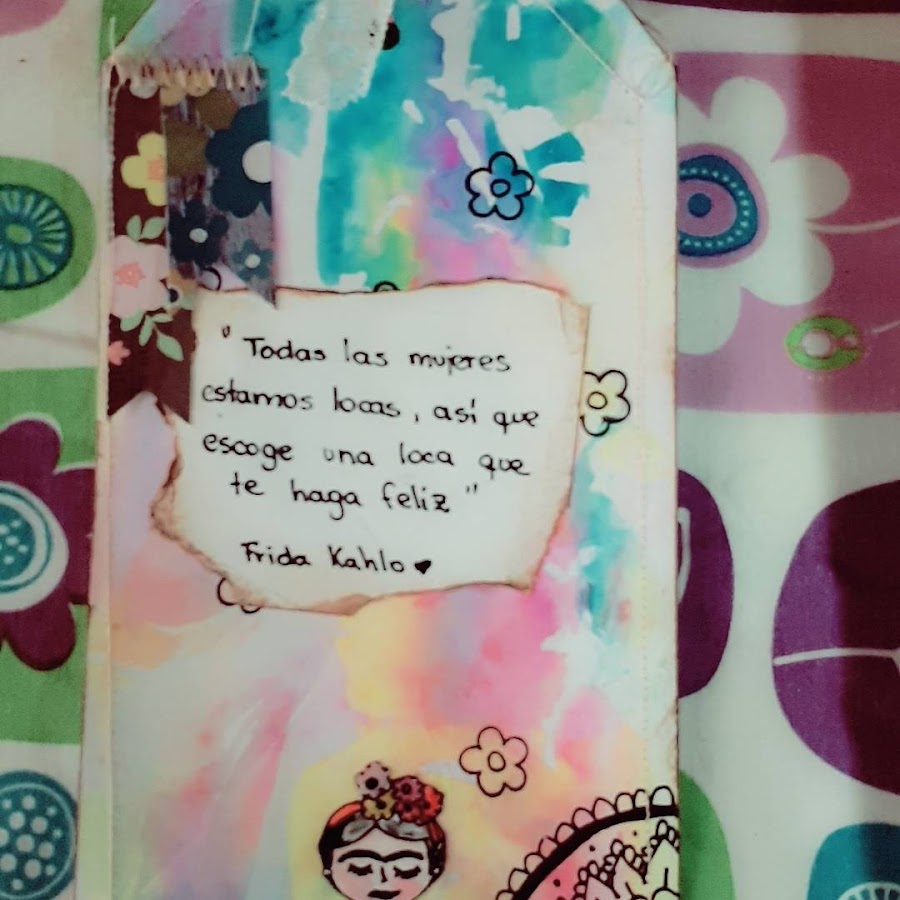 "Todas las mujeres
estamos locas, así que
escoge una loca que
te haga feliz"
Frida Kahlo